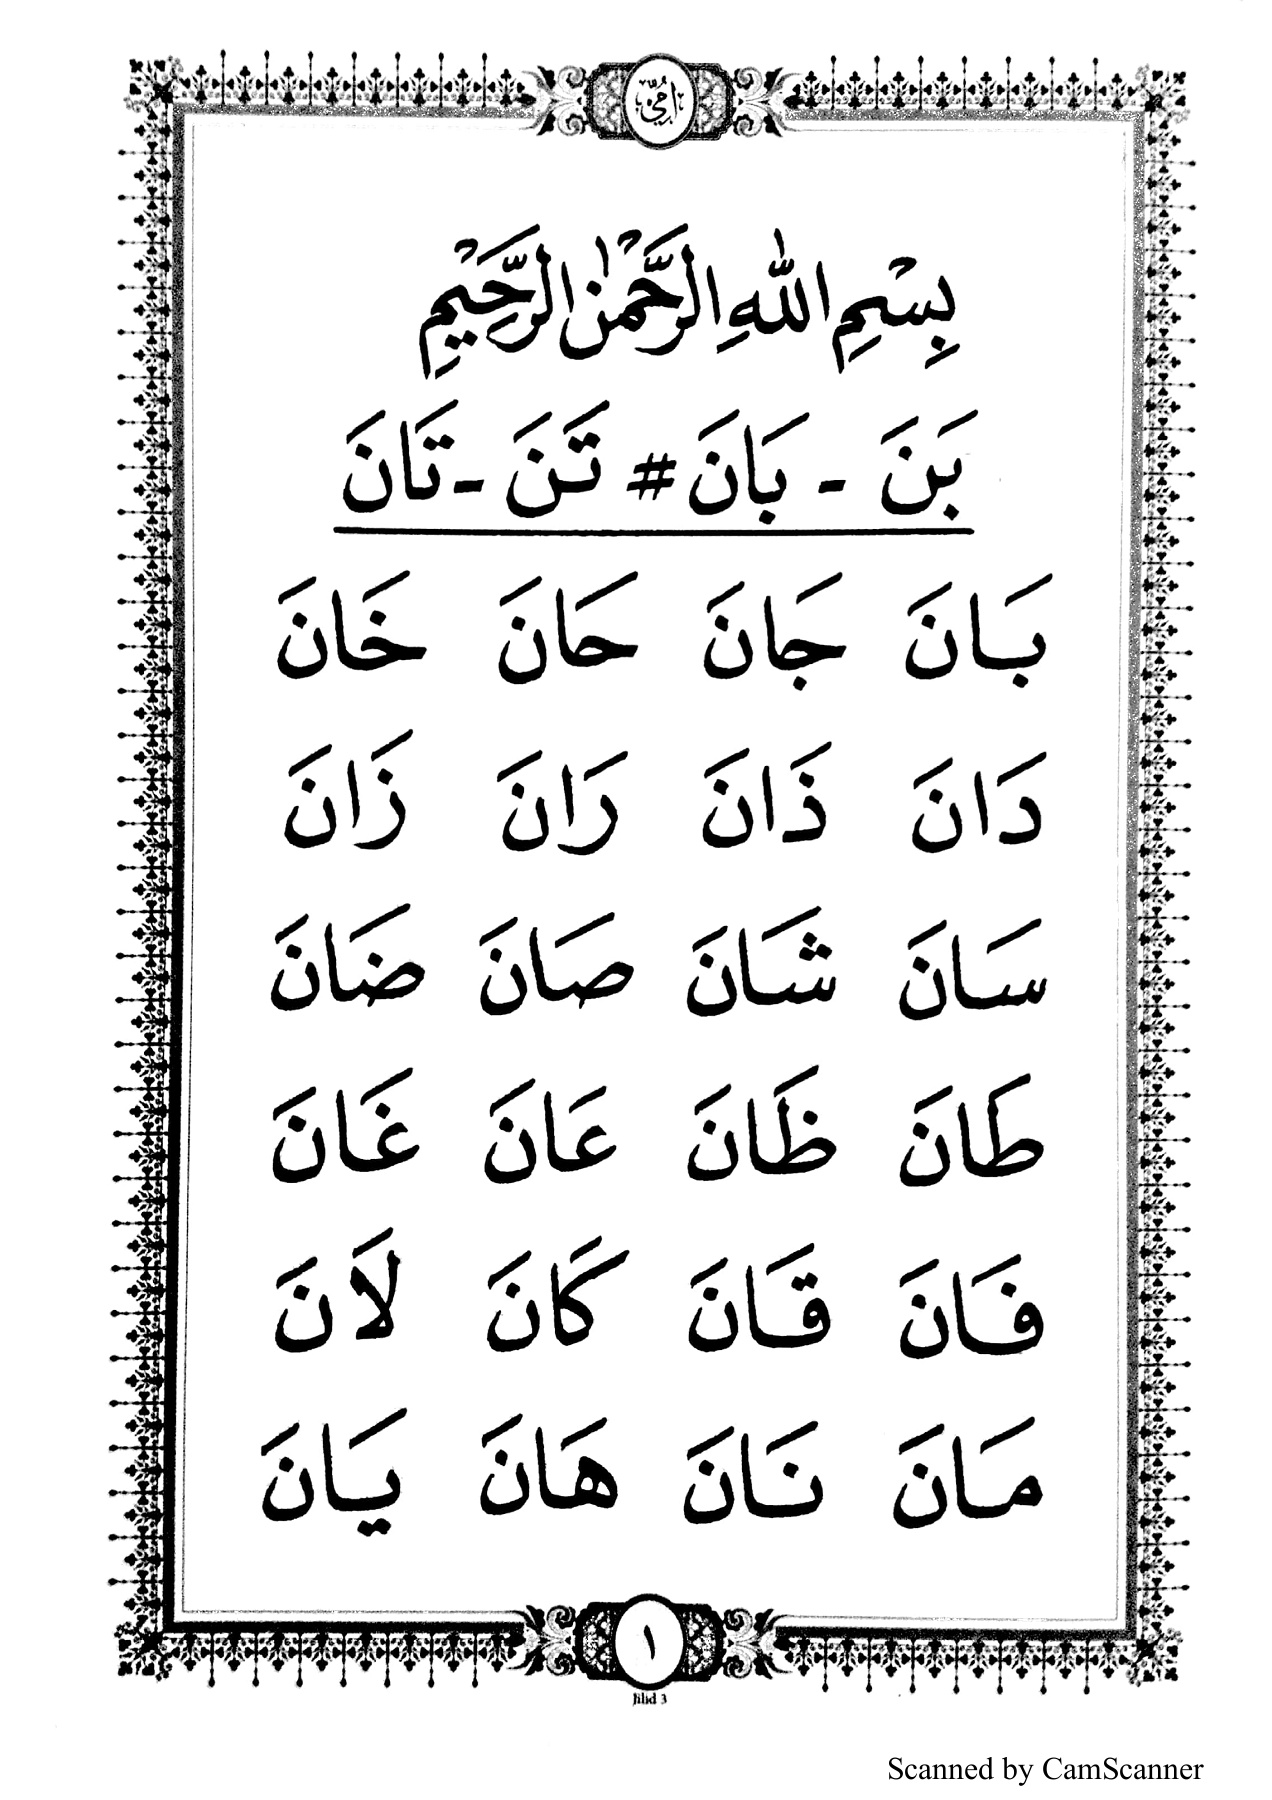 أمي
بِسْمِ اللهِ الرَّحْمٰنِ الرَّحِيْمِ
بَنَ - بَانَ # تَنَ - تَانَ
بَانَ جَانَ حَانَ خَانَ
دَانَ ذَانَ رَانَ زَانَ
سَانَ شَانَ صَانَ ضَانَ
طَانَ ظَانَ عَانَ غَانَ
فَانَ قَانَ كَانَ لَانَ
مَانَ نَانَ هَانَ يَانَ
١
Jilid 3
Scanned by CamScanner